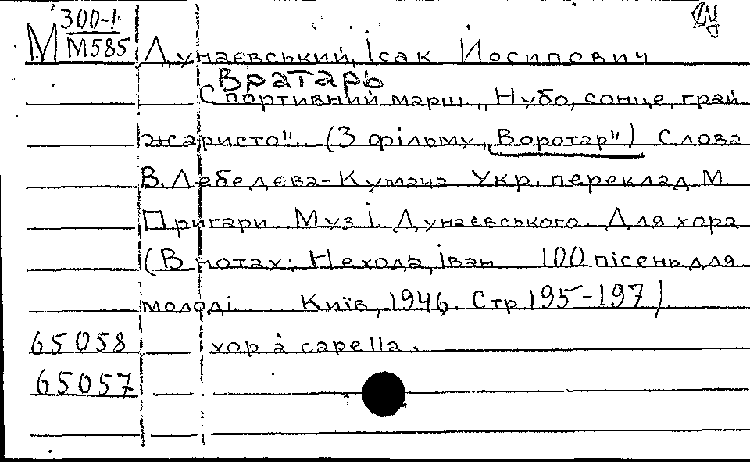 М 300-1
М585 Дунаєвський, Ісак Йосипович
Вратарь
Спортивний марш „Нубо, сонце, грай
жаристо". (З фільму „Воротар") Слова
В. Лебедєва-Кумача Укр. переклад М.
Пригари Муз. І. Дунаєвського. Для хора
(В нотах: Нехода, Іван 100 пісень для
молоді. Київ, 1946. Стр 195-197)
65058 хор a capella.
65057